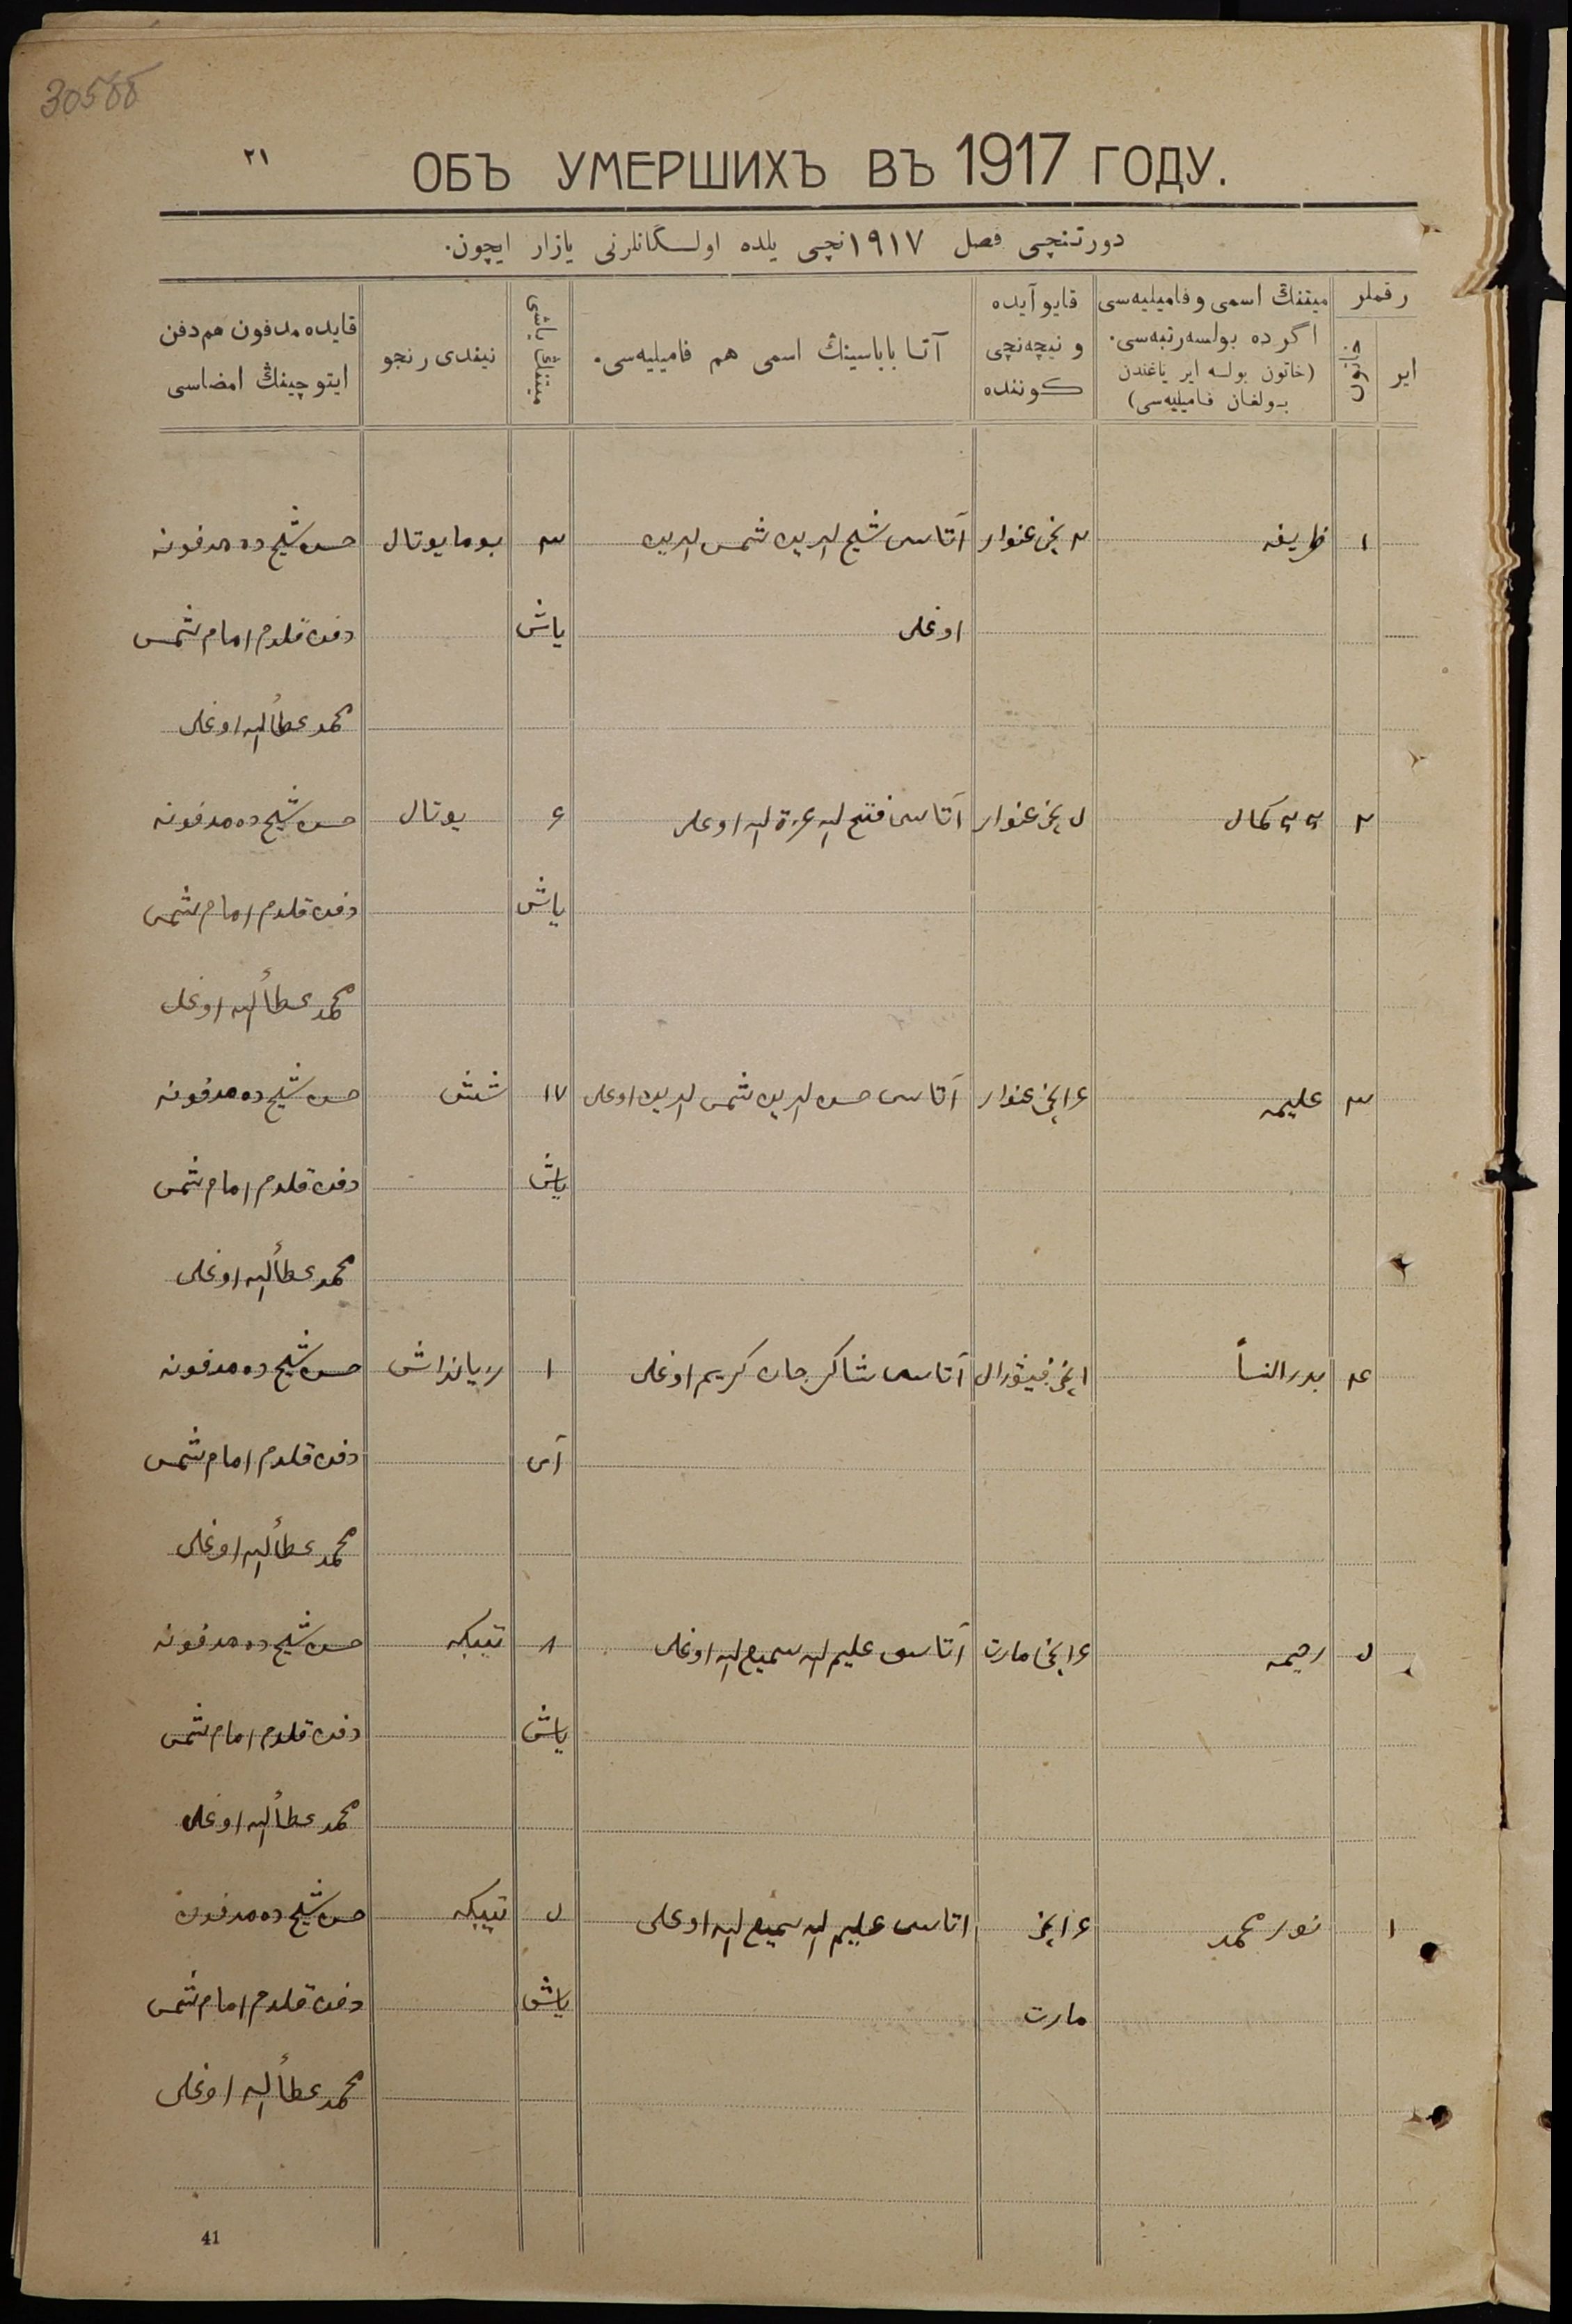 305об
٢١
ОБЪ УМЕРШИХЪ ВЪ 1917 ГОДУ.
دورتنچی فصل ١٩١٧نچی یلده اولسگانلرنی یازار ایچون.
رقملر
ایر
خاتون
میتنڭ اسمی و فامیلیه‌سی
اگرده بولسه رتبه‌سی.
(خاتون بولسه ایر یاغندن
بولغان فامیلیه‌سی)
قایو آیده
و نیچه‌نچی
کوننده
آتا باباسینڭ اسمی هم فامیلیه‌سی.
میتنڭ یاشی
نیندی رنجو
قایده مدفون هم دفن
ایتوچینڭ امضاسی
١ ظریفه ٢ نچی غنوار آتاسی شیخ الدین شمس الدین ٣ بوما یوتال حسن شیخ ده مدفونه
اوغلی یاش دفن قلدم امام شمس
محمد عطأ الله اوغلی
٢ کمال ٥ نچی غنوار آتاسی فتح الله عزة الله اوغلی ٤ یوتال حسن شیخ ده مدفونه
یاش دفن قلدم امام شمس
محمد عطأ الله اوغلی
٣ علیمه ١٤ نچی غنوار آتاسی حسن الدین شمس الدین اوغلی ١٧ شش حسن شیخ ده مدفونه
یاش دفن قلدم امام شمس
محمد عطأ الله اوغلی
٤ بدر النسأ ١ نچی فیورال آتاسی شاکر جان کریم اوغلی ١ حسن شیخ ده مدفونه
آی دفن قلدم امام شمس
محمد عطأ الله اوغلی
٥ رحیمه ١٤ نچی مارت آتاسی علیم الله سمیع الله اوغلی ٨ تیبکه حسن شیخ ده مدفونه
یاش دفن قلدم امام شمس
محمد عطأ الله اوغلی
١ نور محمد ١٤ نچی اتاسی علیم الله سمیع الله اوغلی ٥ تیبکه حسن شیخ ده مدفون
مارت یاش دفن قلدم امام شمس
محمد عطأ الله اوغلی
41